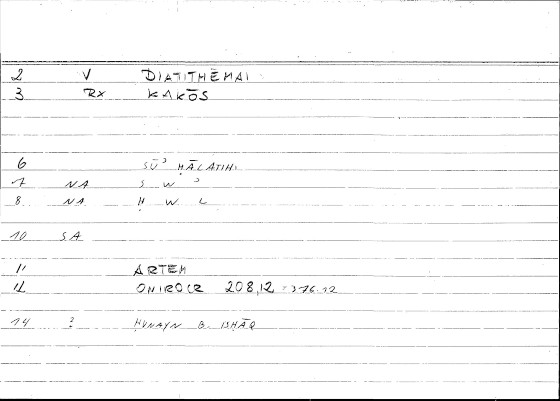 2 V DIATITHĒMAI
3 RX KAKŌS
6 SŪʾ ḤĀLATIHI
7 NA S W ʾ
8 NA Ḥ W L
10 SA
11 ARTEM
12 ONIROCR 208,12 = 376.12
14 ? ḤUNAYN B. ISḤĀQ